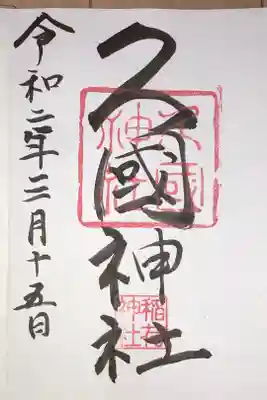 久國神社
令和二年三月十五日
久國
神社
稲荷
神社